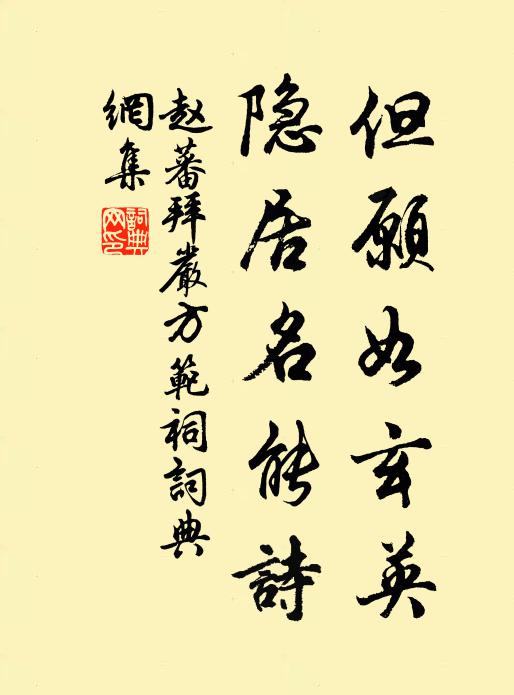 但願如玄英
隐居名能詩
赵蕃拜嚴方範祠詞典
網集
詞典網印